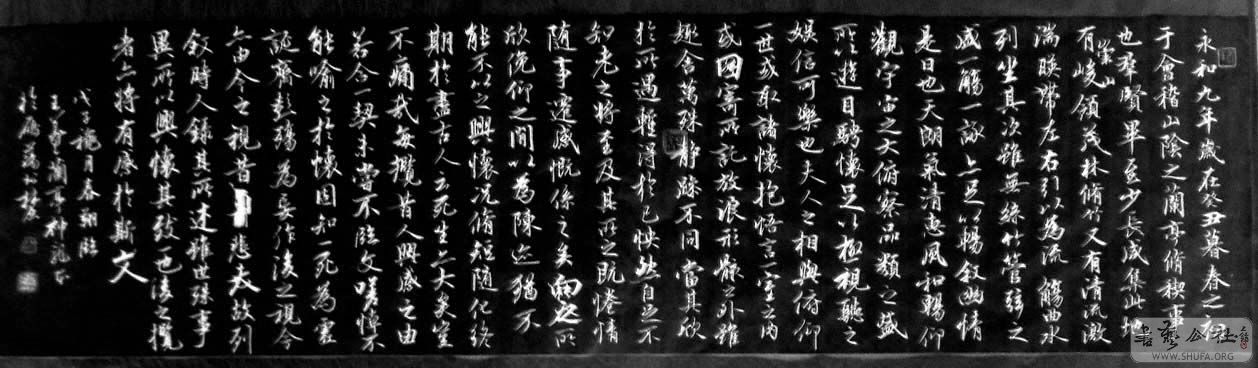 永和九年歲在癸丑暮春之初會
于會稽山陰之蘭亭脩稧事
也羣賢畢至少長咸集此地
有峻領茂林脩竹又有清流激
崇山
湍暎帶左右引以為流觴曲水
列坐其次雖無絲竹管弦之
盛一觴一詠亦足以暢敘幽情
是日也天朗氣清惠風和暢仰
觀宇宙之大俯察品類之盛
所以遊目騁懷足以極視聽之
娛信可樂也夫人之相與俯仰
一世或取諸懷抱悟言一室之內
或因寄所託放浪形骸之外雖
趣舍萬殊靜躁不同當其欣
於所遇蹔得於己怏然自足不
知老之將至及其所之既惓情
隨事遷感慨係之矣向之所
欣俛仰之間以為陳迹猶不
能不以之興懷況脩短隨化終
期於盡古人云死生亦大矣豈
不痛哉每攬昔人興感之由
若合一契未嘗不臨文嗟悼不
能喻之於懷固知一死生為虛
誕齊彭殤為妄作後之視今
亦由今之視昔悲夫故列
敘時人錄其所述雖世殊事
異所以興懷其致一也後之攬
者亦將有感於斯文
戊子 月春朝臨
王羲之蘭亭神龍本
於
書藝公社
WWW.SHUFA.ORG